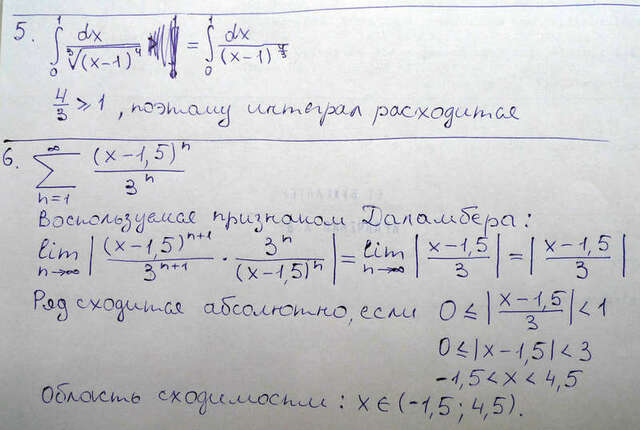 5. ∫₀¹ dx / ∛(x-1)⁴ = ∫₀¹ dx / (x-1)^(4/3)
4/3 ⩾ 1, поэтому интеграл расходится
6. ∑_{n=1}^{∞} (x-1,5)ⁿ / 3ⁿ
Воспользуемся признаком Даламбера:
lim_{n→∞} | (x-1,5)ⁿ⁺¹ / 3ⁿ⁺¹ · 3ⁿ / (x-1,5)ⁿ | = lim_{n→∞} | (x-1,5) / 3 | = | (x-1,5) / 3 |
Ряд сходится абсолютно, если 0 ≤ | (x-1,5) / 3 | < 1
0 ≤ |x-1,5| < 3
-1,5 < x < 4,5
Область сходимости: x ∈ (-1,5; 4,5).